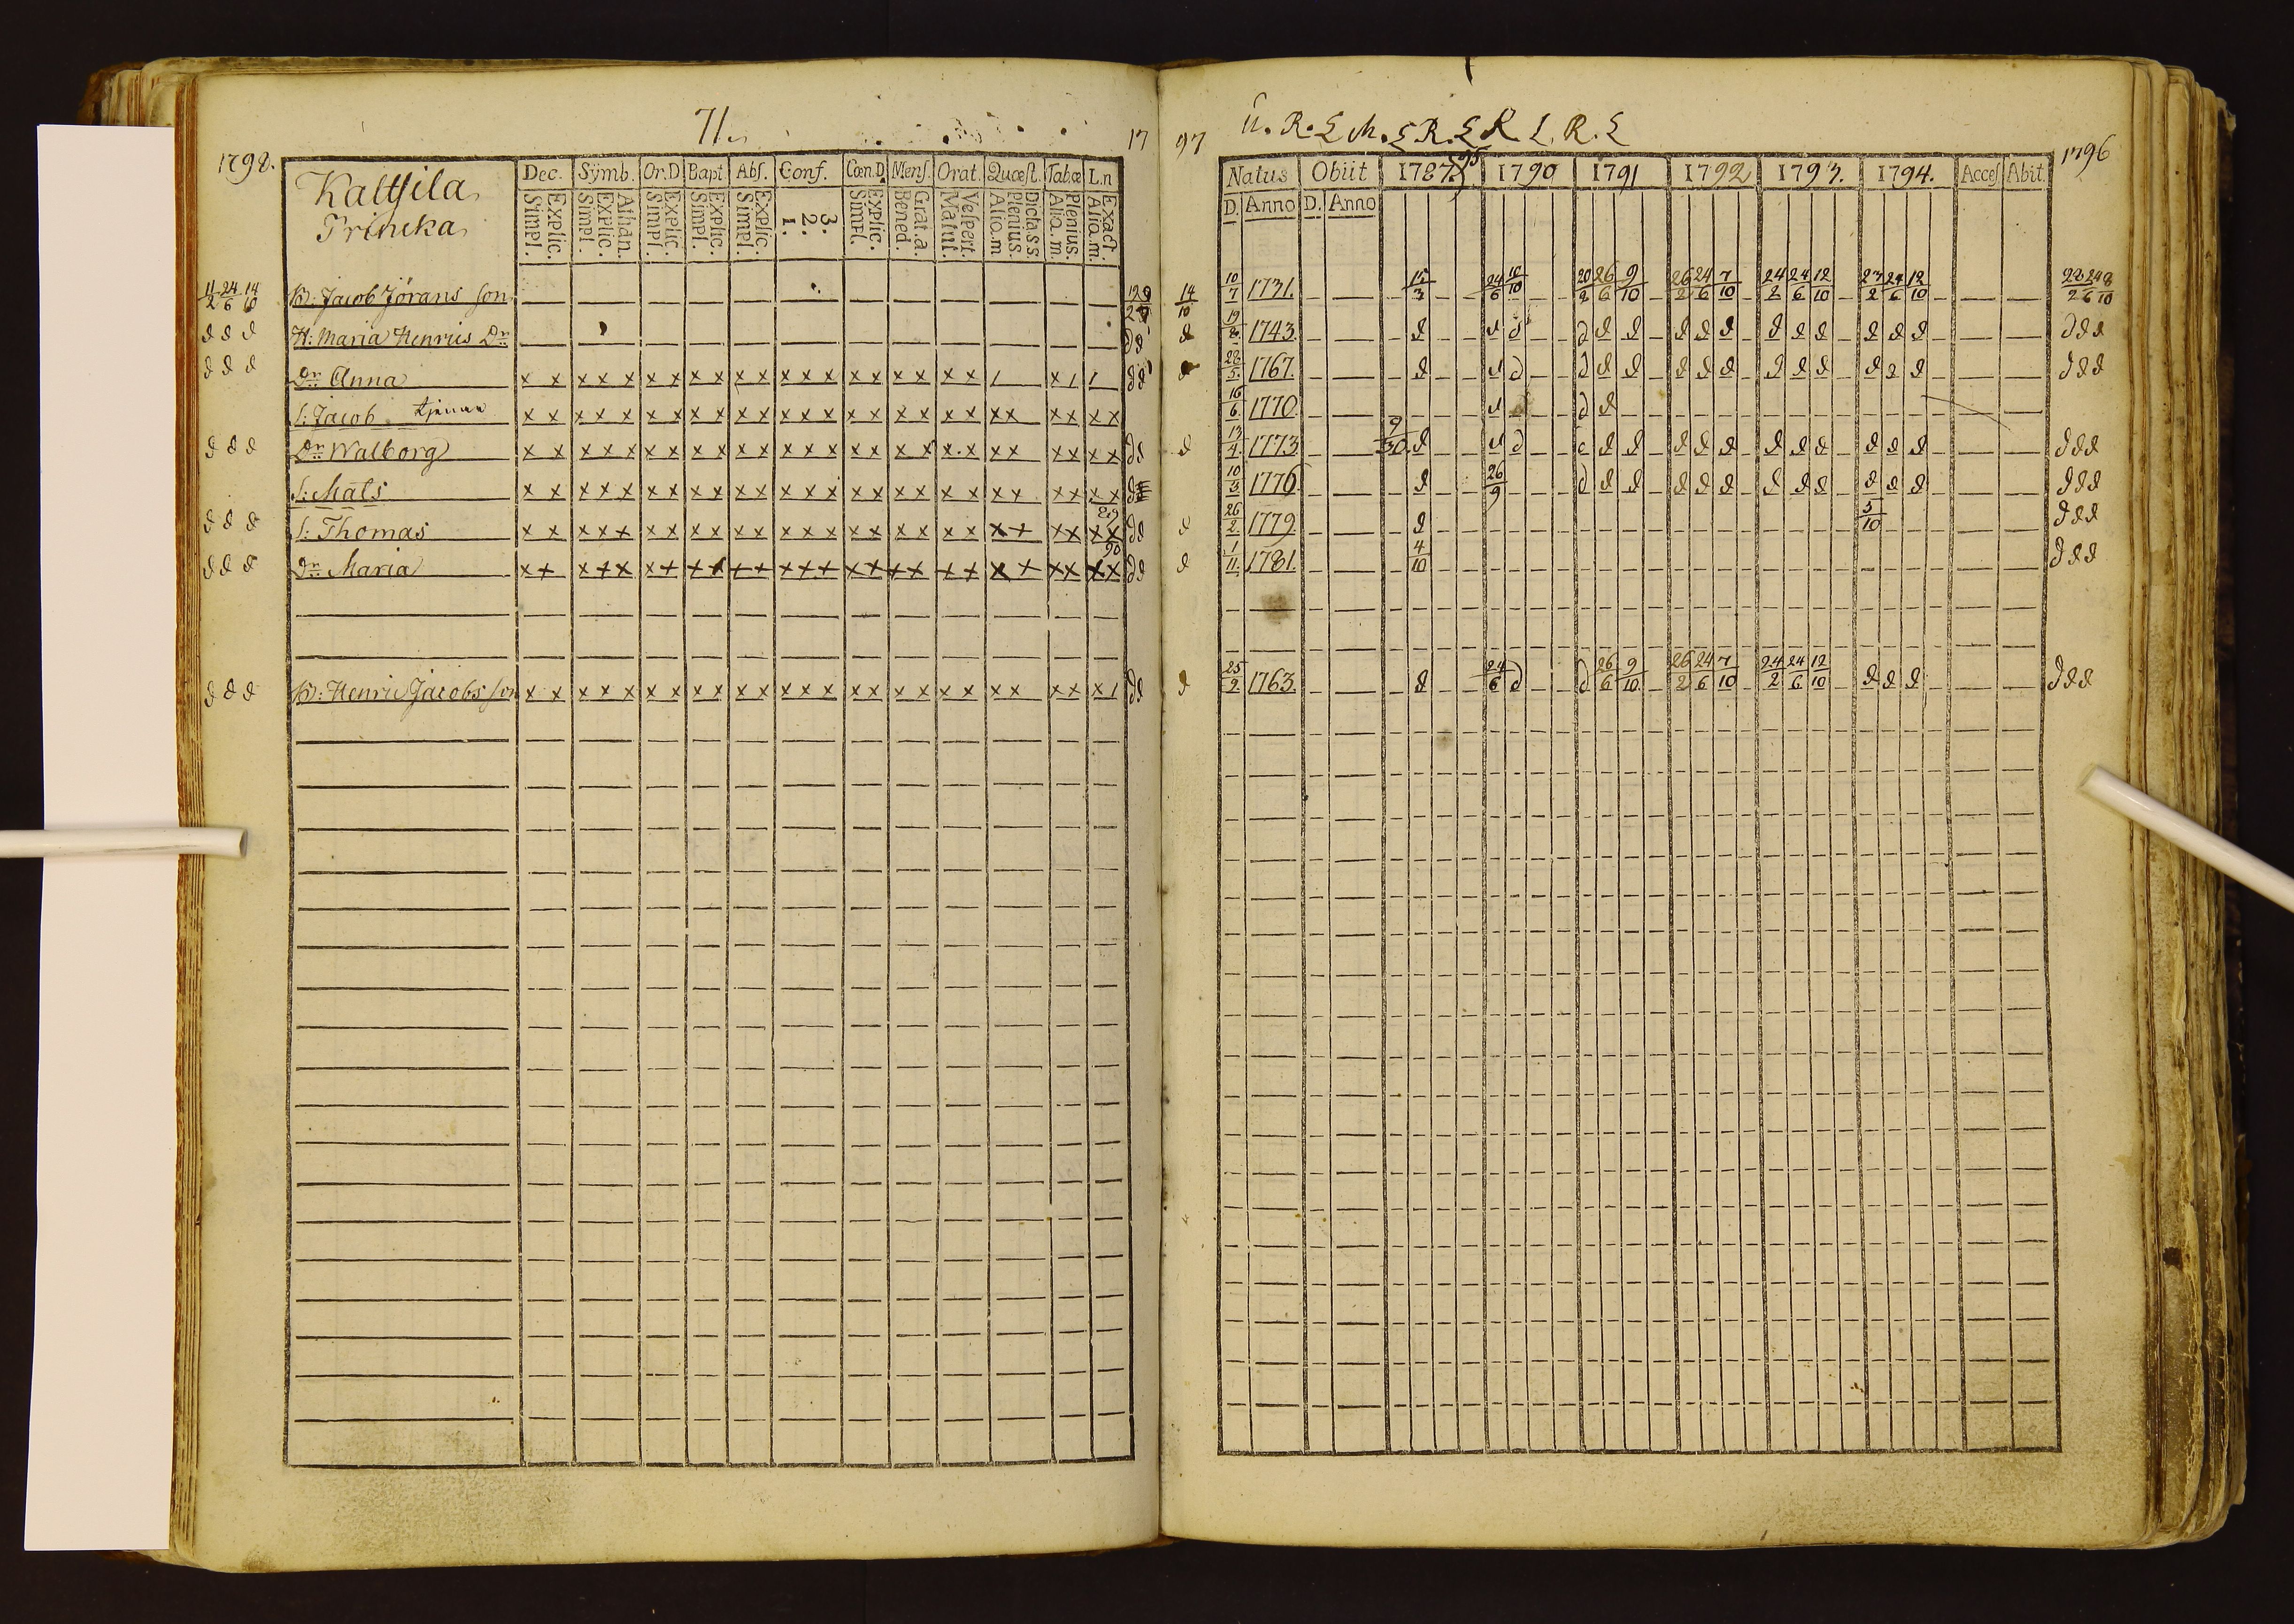 71.
17 97
1798.
Kaltsila
Prinka
Dec. Symb. Or.D Bapt. Abs. Conf. Cœn.D. Mens. Orat. Quæst. Tab.œ L.n
Explic. Simpl. Athan. Explic. Simpl. Explic. Simpl. Explic. Simpl. Explic. Simpl. 3. 2. 1. Explic. Simpl. Grat.a. Bened. Vespert. Matut. Dicta SS Plenius. Aliq.m Plenius. Aliq.m. Exact. Aliq.m.
11/2 24/6 14/10 B: Jacob Jörans son
d d d H: Maria Henrics Dr
d d d Dr Anna x x x x x x x x x x x x x x x x x x x x x / x / /
S: Jacob x x x x x x x x x x x x x x x x x x x x x x x x x x x
d d d Dr Walborg x x x x x x x x x x x x x x x x x x x x x x x x x x x
S: Mats x x x x x x x x x x x x x x x x x x x x x x x x x x x
d d d S: Thomas x x x x x x x x x x x x x x x x x x x x x x x x x x x
d d d Dr Maria x x x x x x x x x x x x x x x x x x x x x x x x x x x
d d d B: Henric Jacobs son x x x x x x x x x x x x x x x x x x x x x x x x x x /
1796
Natus Obiit 1787 95 1790 1791 1792 1793. 1794. Acces Abit
D. Anno D. Anno
14/10 10/7 1731. 15/3 24/6 10/10 20/2 26/6 9/10 26/2 24/6 7/10 24/2 24/6 12/10 23/2 24/6 12/10
d 19/8 1743. d d d d d d d d d d d d d d d d d
28/5 1767. d d d d d d d d d d d d d d d d
16/6 1770. d d d
d 13/4 1773. 9/30 d d d d d d d d d d d d d d d d d
10/3 1776. d 26/9 d d d d d d d d d d d d d d d
d 26/2 1779. d 5/10 d d d
d 1/11 1781. 4/10 d d d
d 25/2 1763. d 24/6 d d 26/6 9/10 26/2 24/6 7/10 24/2 24/6 12/10 d d d d d d